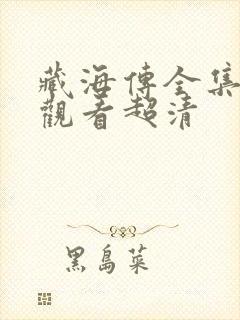 藏海傳全集
觀看超清
黑島菜